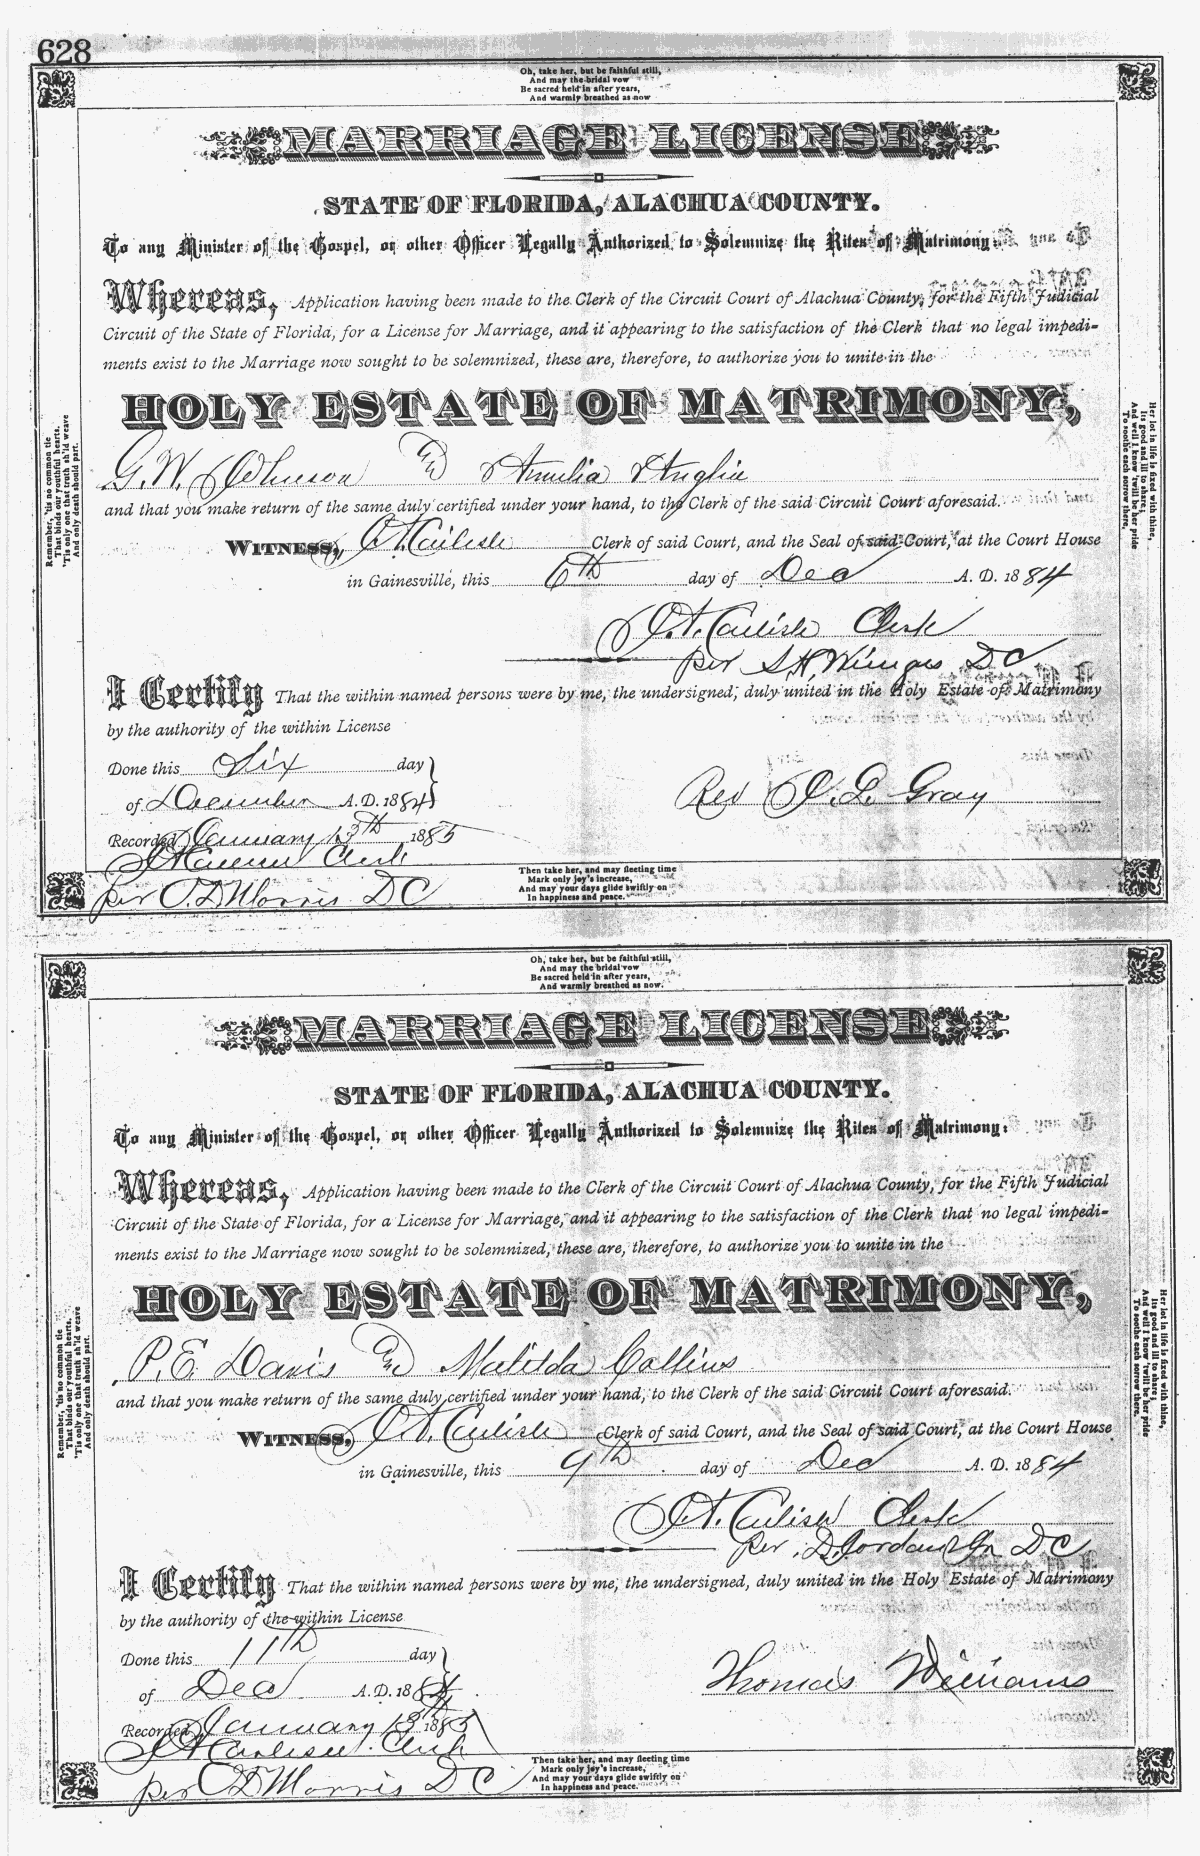 628
Oh, take her, but be faithful still,
And may the bridal vow
Be sacred held in after years,
And warmly breathed as now
MARRIAGE LICENSE
STATE OF FLORIDA, ALACHUA COUNTY.
To any Minister of the Gospel, or other Officer Legally Authorized to Solemnize the Rites of Matrimony:
Whereas, Application having been made to the Clerk of the Circuit Court of Alachua County, for the Fifth Judicial
Circuit of the State of Florida, for a License for Marriage, and it appearing to the satisfaction of the Clerk that no legal impedi-
ments exist to the Marriage now sought to be solemnized, these are, therefore, to authorize you to unite in the
HOLY ESTATE OF MATRIMONY,
G. W. Johnson and Amelia Anglin
and that you make return of the same duly certified under your hand, to the Clerk of the said Circuit Court aforesaid.
WITNESS, Carlisle Clerk of said Court, and the Seal of said Court, at the Court House
in Gainesville, this 6th day of Dec A. D. 1884
Carlisle Clerk
per S. H. Wienges D C
I Certify That the within named persons were by me, the undersigned, duly united in the Holy Estate of Matrimony
by the authority of the within License
Done this Six day
of December A. D. 1884
Rev Gray
Recorded January 13th 1885
Clerk
per O. D Morris D C
Remember, 'tis no common tie
That binds our youthful hearts,
'Tis only one that truth sh'ld weave
And only death should part.
Her lot in life is fixed with thine,
Its good and ill to share;
And well I know 'twill be her pride
To soothe each sorrow there.
Then take her, and may fleeting time
Mark only joy's increase,
And may your days glide swiftly on
In happiness and peace.
Oh, take her, but be faithful still,
And may the bridal vow
Be sacred held in after years,
And warmly breathed as now.
MARRIAGE LICENSE
STATE OF FLORIDA, ALACHUA COUNTY.
To any Minister of the Gospel, or other Officer Legally Authorized to Solemnize the Rites of Matrimony:
Whereas, Application having been made to the Clerk of the Circuit Court of Alachua County, for the Fifth Judicial
Circuit of the State of Florida, for a License for Marriage, and it appearing to the satisfaction of the Clerk that no legal impedi-
ments exist to the Marriage now sought to be solemnized, these are, therefore, to authorize you to unite in the
HOLY ESTATE OF MATRIMONY,
P. E. Davis and Matilda Collins
and that you make return of the same duly certified under your hand, to the Clerk of the said Circuit Court aforesaid.
WITNESS, Carlisle Clerk of said Court, and the Seal of said Court, at the Court House
in Gainesville, this 9th day of Dec A. D. 1884
Carlisle Clerk
per D. Jordan Jr D C
I Certify That the within named persons were by me, the undersigned, duly united in the Holy Estate of Matrimony
by the authority of the within License
Done this 11th day
of Dec A. D. 1884
Thomas Williams
Recorded January 13th 1885
Clerk
per O D Morris D C
Remember, 'tis no common tie
That binds our youthful hearts,
'Tis only one that truth sh'ld weave
And only death should part.
Her lot in life is fixed with thine,
Its good and ill to share;
And well I know 'twill be her pride
To soothe each sorrow there.
Then take her, and may fleeting time
Mark only joy's increase,
And may your days glide swiftly on
In happiness and peace.